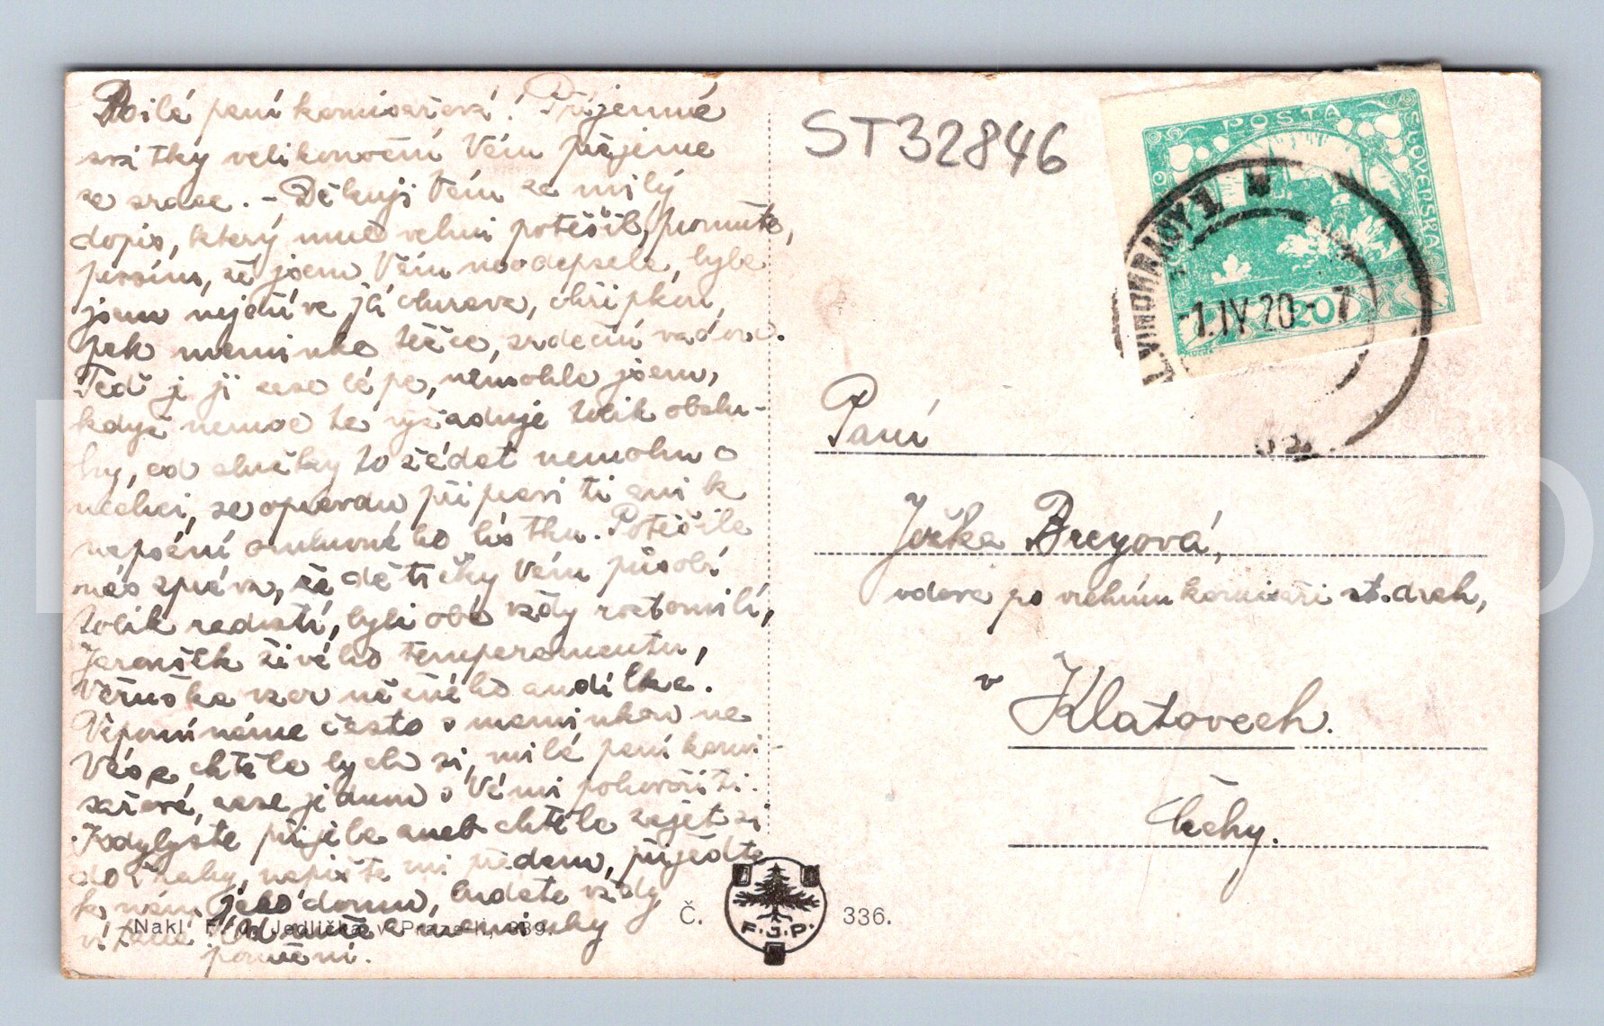 Milá paní komisařová! Příjemné
svátky velikonoční Vám přejeme
ze srdce. - Děkuji Vám za milý
dopis, který mně velmi potěšil, promiňte,
prosím, že jsem Vám neodepsala, byla
jsem nejdříve já churava, chřipkou,
pak maminka těžce, srdeční vadou.
Teď je jí zase lépe, nemohla jsem,
když nemoc ta vyžaduje tolik obslu-
hy, od služky to žádat nemohu a
nechci, se opravdu připraviti ani k
napsání omluvného lístku. Potěšila
nás zpráva, že dětičky Vám působí
tolik radosti, byli oba vždy roztomilí,
Jaroušek živého temperamentu,
Věruška vzor něžného andílka.
Vzpomínáme často s maminkou na
Vás a chtěla bych si, milá paní komi-
sařová, zase jednou s Vámi pohovořiti.
Kdybyste přijela aneb chtěla zajet si
do Prahy, napište mi předem, přijeďte
k nám jako domů, budete vždy
vítána
ST32846
POSTA
ČESKOSLOVENSKÁ
20
KRÁL. VINOHRADY
1.IV.20 - 7
Paní
Breyová,
vdova po vrchním komisaři st. drah,
v Klatovech.
Čechy.
Nakl. F. J. Jedlička, v Praze-II., 939.
Č. 336.
F.J.P.